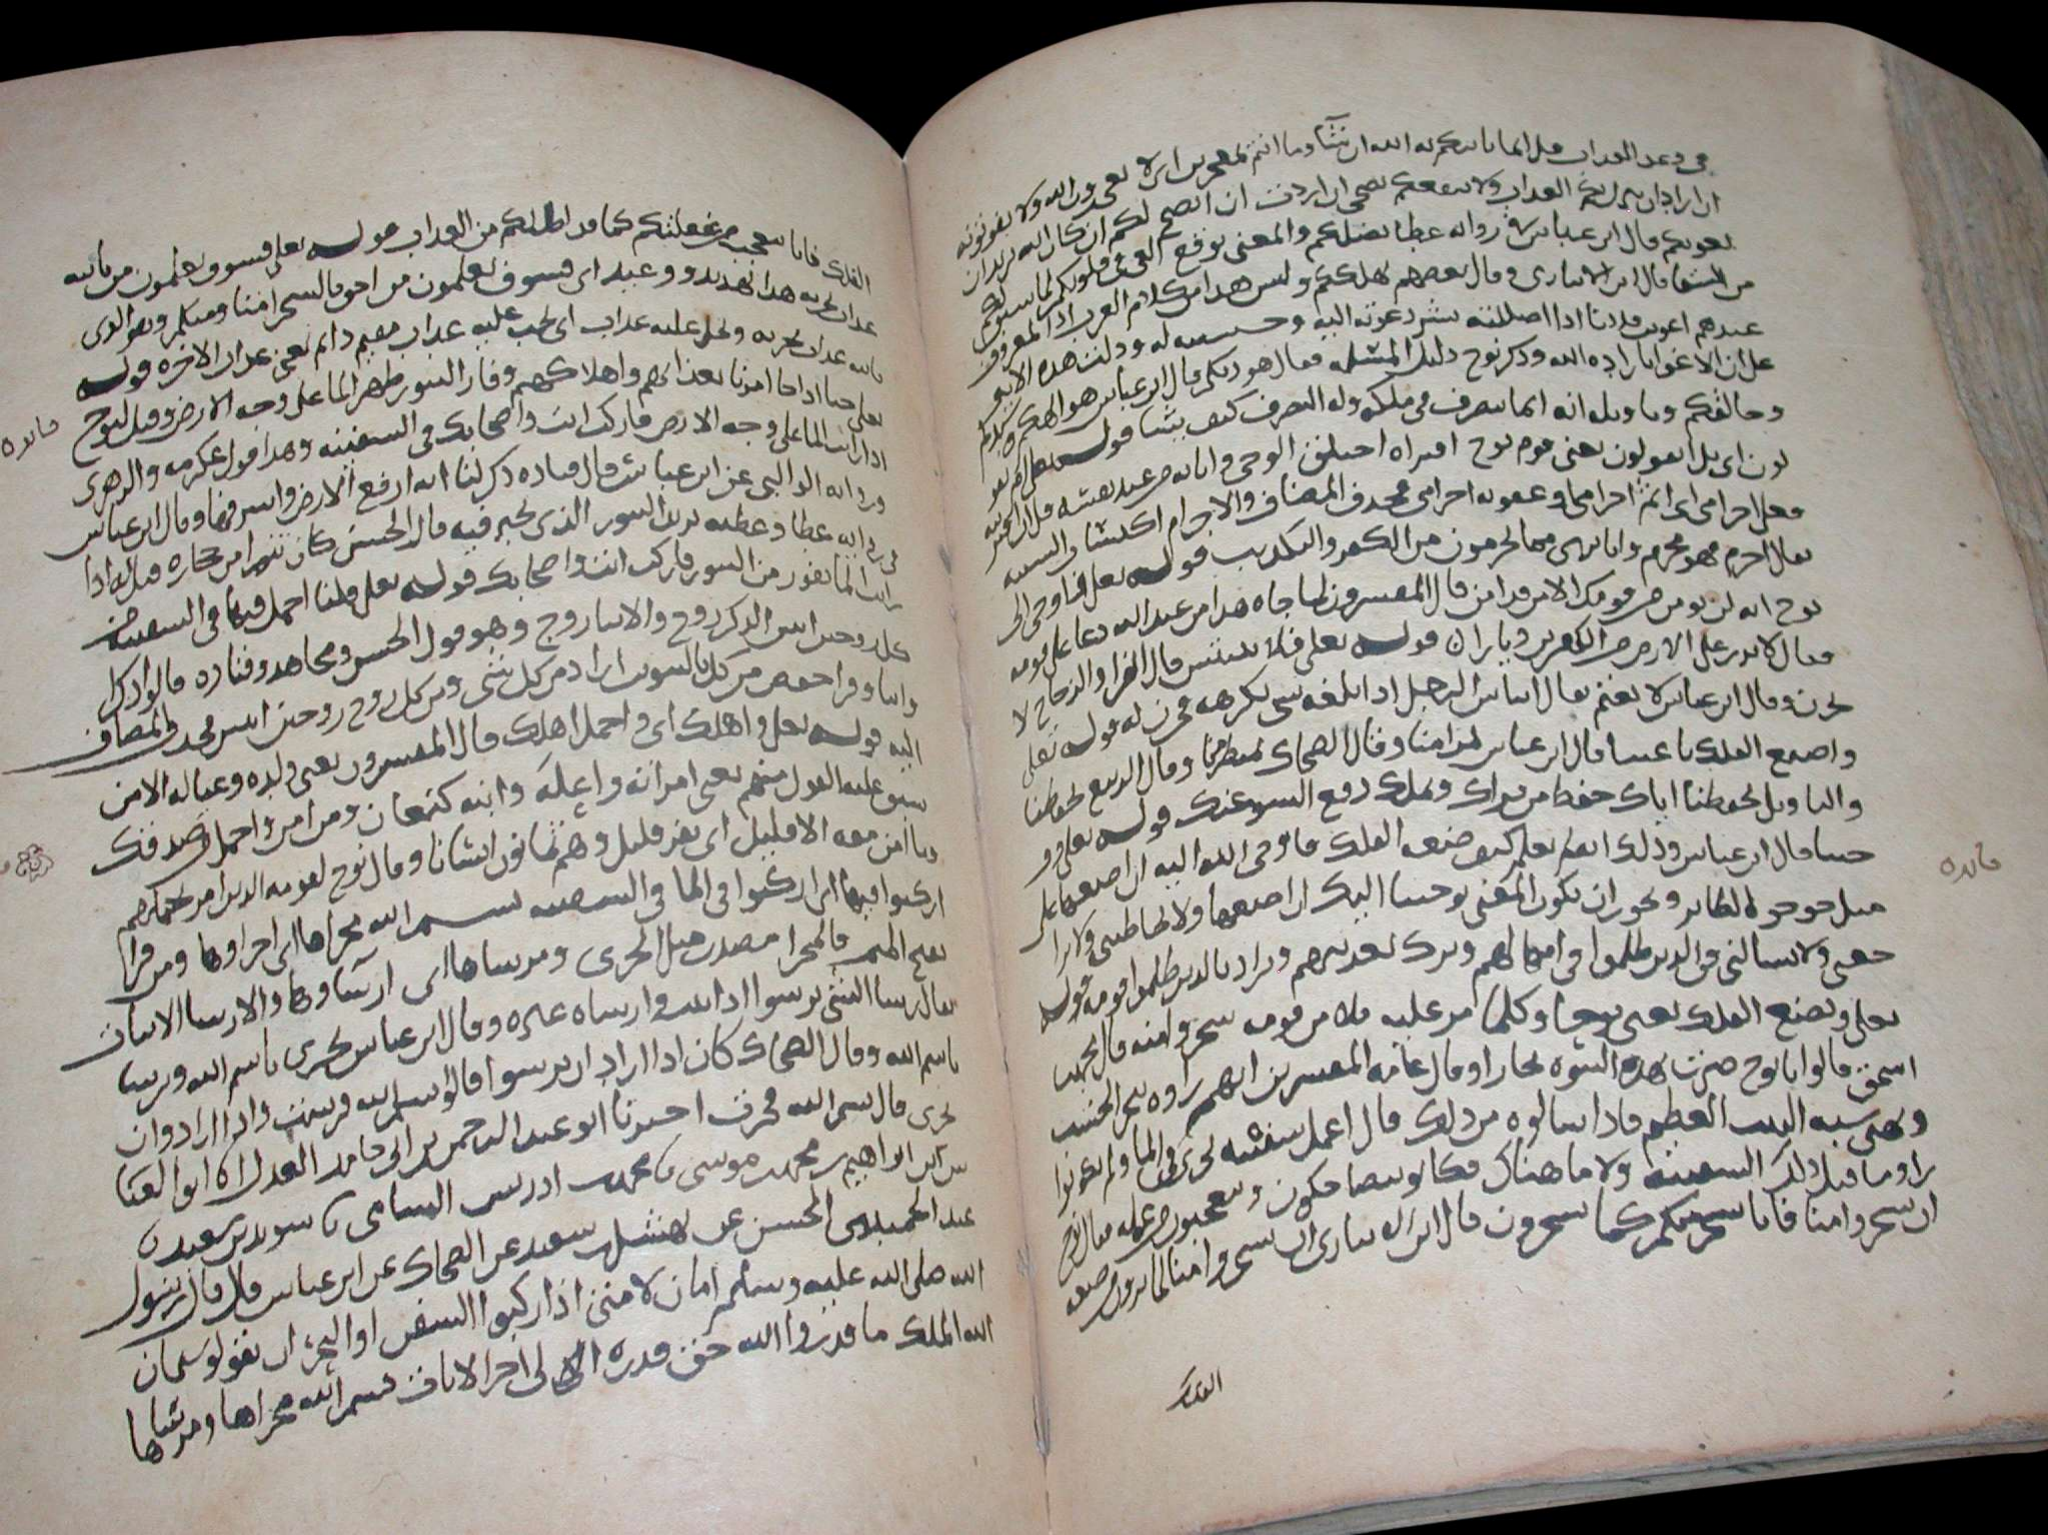 في وعد العذاب قيل انما ياتيكم به الله ان شآ وما انتم بمعجزين اي لا تعجزون الله ولا تفوتونه
ان اراد ان ينزل بكم العذاب ولا ينفعكم نصحي ان اردت ان انصح لكم ان كان الله يريد ان
يغويكم قال ابن عباس في رواية عطا يضلكم والمعنى يوقع الغي في قلوبكم لما سبق لكم
من الشقا قال ابن الانباري وقال بعضهم يهلككم وليس هذا من كلام العرب اذ المعروف
عندهم اغويت فلانا اذا اضللته بشر دعوته اليه وحسنته له ودلت هذه الاية
على ان الاغوا بارادة الله وذكر نوح دليل المسئلة فقال هو ربكم قال ابن عباس هو الهكم وسيدكم
وخالقكم وتاويله انه انما يتصرف في ملكه وله التصرف كيف يشا قوله تعالى ام يقو
لون اي بل ايقولون يعني قوم نوح افتراه اختلق الوحي واتا به من عند نفسه قل ان افتريته
فعلي اجرامي اي اثم اجرامي وعقوبه اجرامي فحذف المضاف والاجرام اكتساب السيئه
يقال اجرم فهو مجرم وانا بري مما تجرمون من الكفر والتكذيب قوله تعالى واوحي الى
نوح انه لن يومن من قومك الا من قد امن قال المفسرون لما جاه هذا من عند الله دعا على قومه
فقال لا تذر على الارض من الكفرين ديارا قوله تعالى فلا تبتئس قال الفرا والزجاج لا
تحزن وقال ابن عباس لا تغتم يقال ابتاس الرجل اذا بلغه شي يكرهه فحزن له قوله تعالى
واصنع الفلك باعيننا قال ابن عباس بمرا منا وقال الضحاك بمنظر منا وقال الربيع بحفظنا
والتاويل بحفظنا اياك حفظ من يراك ويملك دفع السو عنك قوله تعالى وو
حينا قال ابن عباس وذلك انه لم يعلم كيف صنعه الفلك فاوحى الله اليه ان اصنعها على
مثل جوجو الطاير ويجوز ان يكون المعنى بوحينا اليك ان اصنعها ولا تخاطبني ولا ترا
جعني ولا تسالني في الذين ظلموا في امهالهم وترك تعذيبهم وترادّ بالذين ظلموا قومه قوله
تعالى ويصنع الفلك يعني نوحا وكلما مر عليه ملا من قومه سخروا منه قال محمد بن
اسحق قالوا يا نوح صرت بعد النبوه نجارا وقال عامه المفسرين انهم راوه ينجر الخشب
ويبني شبه البيت العظيم فاذا سالوه من ذلك قال اعمل سفينه تجري في الما ولم يكونوا
راو ما قبل ذلك السفينه ولا ما هناك فكانو يتضاحكون ويعجبون من عمله فقال نوح
ان تسخروا منا فانا نسخر منكم كما تسخرون قال ابن الانباري ان تسخروا منا لما ترون من صنعه
الفلك
فايده
الفلك فانا نعجب من غفلتكم عما قد اظلكم من العذاب قوله تعالى فسوف تعلمون من ياتيه
عذاب يخزيه هذا تهديد ووعيد اي فسوف تعلمون من احق بالسخر امنا ومنكم وهو الذي
ياتيه عذاب يخزيه ويحل عليه عذاب اي يجب عليه عذاب مقيم دايم يعني عذاب الاخره قوله
تعالى حتا اذا جا امرنا بعذابهم واهلاكهم وفار التنور ظهر الما على وجه الارض وقيل لنوح
اذا رايت الما على وجه الارض فاركب انت واصحابك في السفينه وهذا قول عكرمه والزهري
وروايه الوالبي عن ابن عباس قال قتاده ذكر لنا انه ارفع الارض واشرفها وقال ابن عباس
في روايه عطا وعطيه يريد التنور الذي يخبز فيه قال الحسن كان تنورا من حجاره قيل له اذا
رايت الما يفور من التنور فاركب انت واصحابك قوله تعالى قلنا احمل فيها في السفينه من
كل زوجين اثنين الذكر زوج والانثا زوج وهو قول الحسن ومجاهد وقتاده قالوا ذكر
وانثا وقرا حفص من كل بالتنوين اراد من كل شي ومن كل زوج زوجين اثنين فحذف المضاف
اليه قوله تعالى واهلك اي واحمل اهلك قال المفسرون يعني ولده وعياله الا من
سبق عليه القول منهم يعني امراته واعله وابنه كنعان ومن امن واحمل من صدقك
وما امن معه الا قليل اي نفر قليل وهم ثمانون انسانا وقال نوح لقومه الذين امر بحملهم
اركبوا فيها اي اركبوا في الما في السفينه بسم الله مجراها اي اجراوها ومن قرا
بفتح الميم فالمجرا مصدر مثل الجري ومرساها اي ارساوها والارسا الاثبات
يقال رسا الشي يرسوا اذا ثبت وارساه غيره وقال ابن عباس تجري باسم الله وترسا
باسم الله وقال الضحاك كان اذا اراد ان ترسوا قال بسم الله فرست واذا اراد ان
تجري قال بسم الله فجرت اخبرنا ابو عبد الرحمن بن ابي حامد العدل انا ابو العبا
س بن ابراهيم بن محمد بن موسى نا محمد بن ادريس السامي نا سويد بن سعيد نا
عبد الحميد الحسن عن نهشل بن سعيد عن الضحاك عن ابن عباس قال قال رسول
الله صلى الله عليه وسلم امان لامتي اذا ركبوا السفن او البحر ان يقولو بسم
الله الملك ما قدروا الله حق قدره الى اخر الايات بسم الله مجراها ومرساها
فايده